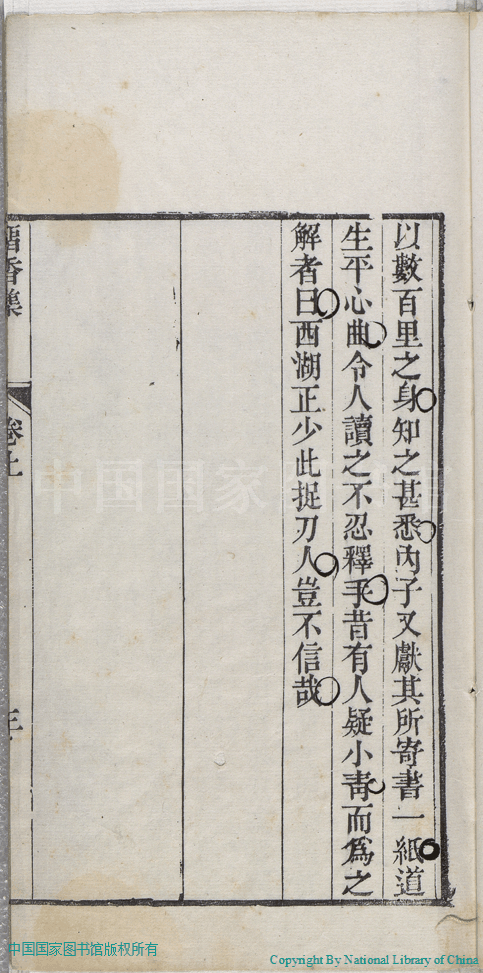 以數百里之身知之甚悉內子又獻其所寄書一紙道
生平心曲令人讀之不忍釋手昔有人疑小靑而爲之
解者曰西湖正少此捉刀人豈不信哉
香集
卷上
三
中国国家
中国国家图书馆版权所有
Copyright By National Library of China